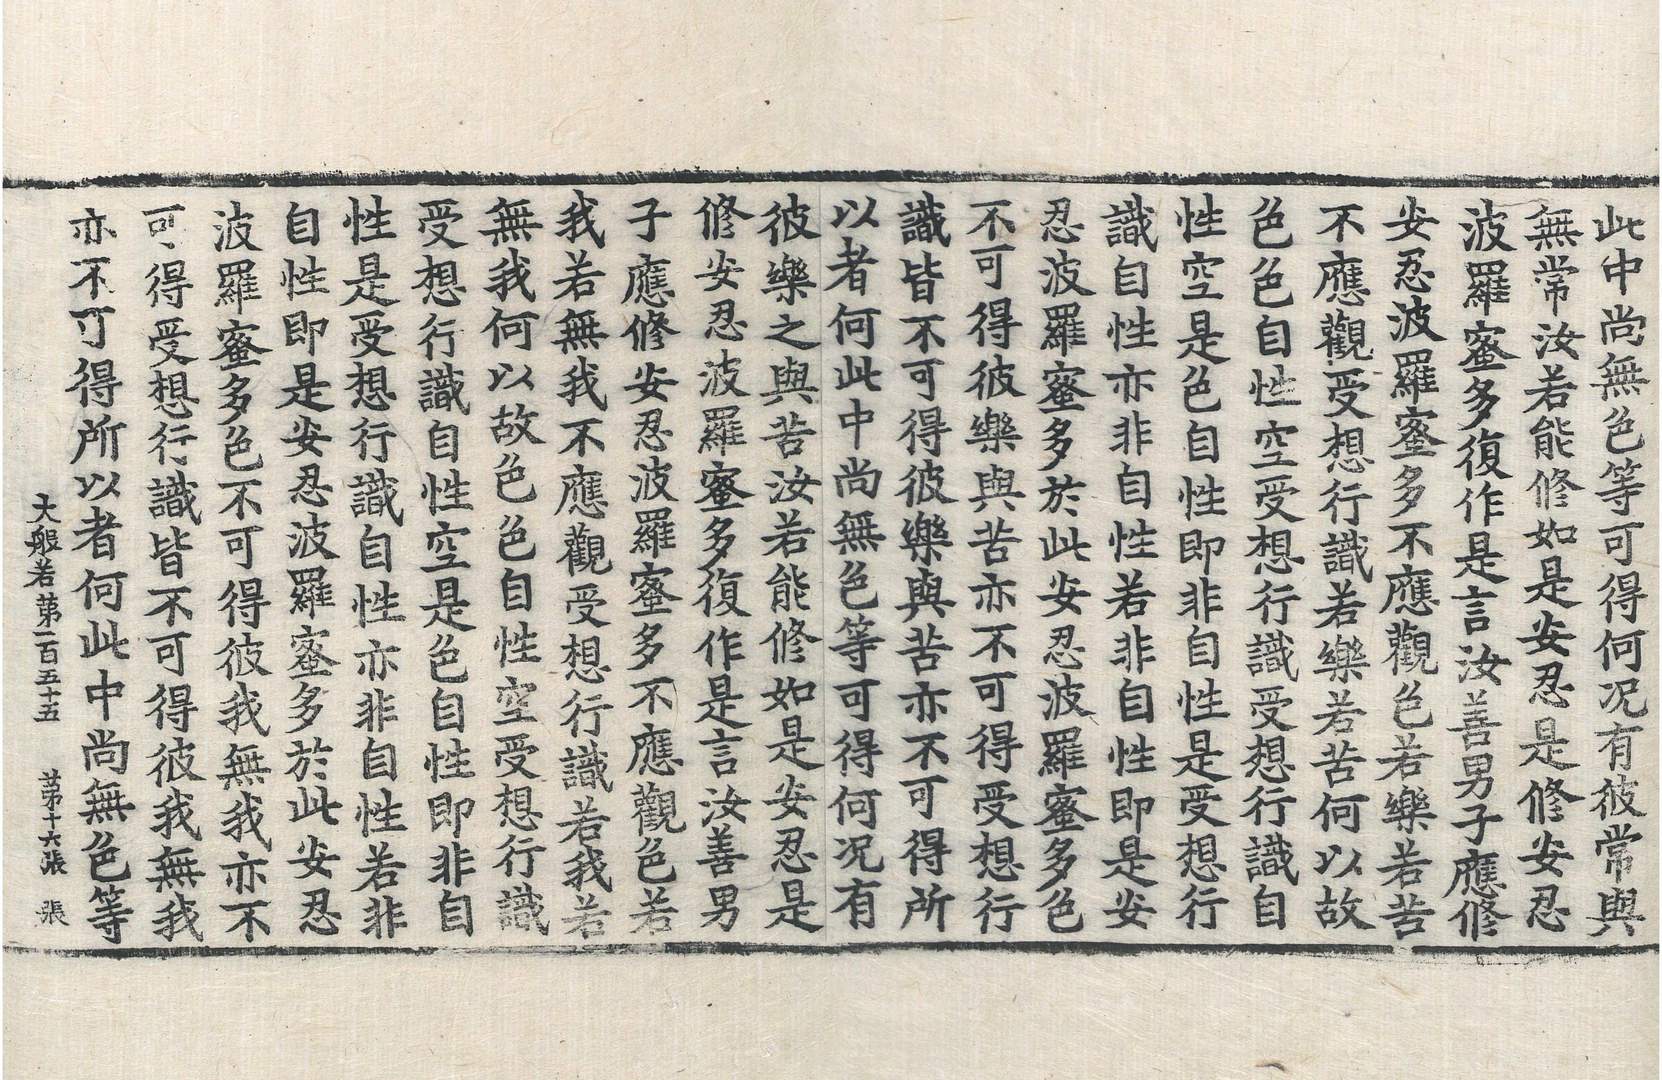 此中尚無色等可得何况有彼常與
無常汝若能修如是安忍是修安忍
波羅蜜多復作是言汝善男子應修
安忍波羅蜜多不應觀色若樂若苦
不應觀受想行識若樂若苦何以故
色色自性空受想行識受想行識自
性空是色自性即非自性是受想行
識自性亦非自性若非自性即是安
忍波羅蜜多於此安忍波羅蜜多色
不可得彼樂與苦亦不可得受想行
識皆不可得彼樂與苦亦不可得所
以者何此中尚無色等可得何况有
彼樂之與苦汝若能修如是安忍是
修安忍波羅蜜多復作是言汝善男
子應修安忍波羅蜜多不應觀色若
我若無我不應觀受想行識若我若
無我何以故色色自性空受想行識
受想行識自性空是色自性即非自
性是受想行識自性亦非自性若非
自性即是安忍波羅蜜多於此安忍
波羅蜜多色不可得彼我無我亦不
可得受想行識皆不可得彼我無我
亦不可得所以者何此中尚無色等
大般若第一百五十五 第十六張 張